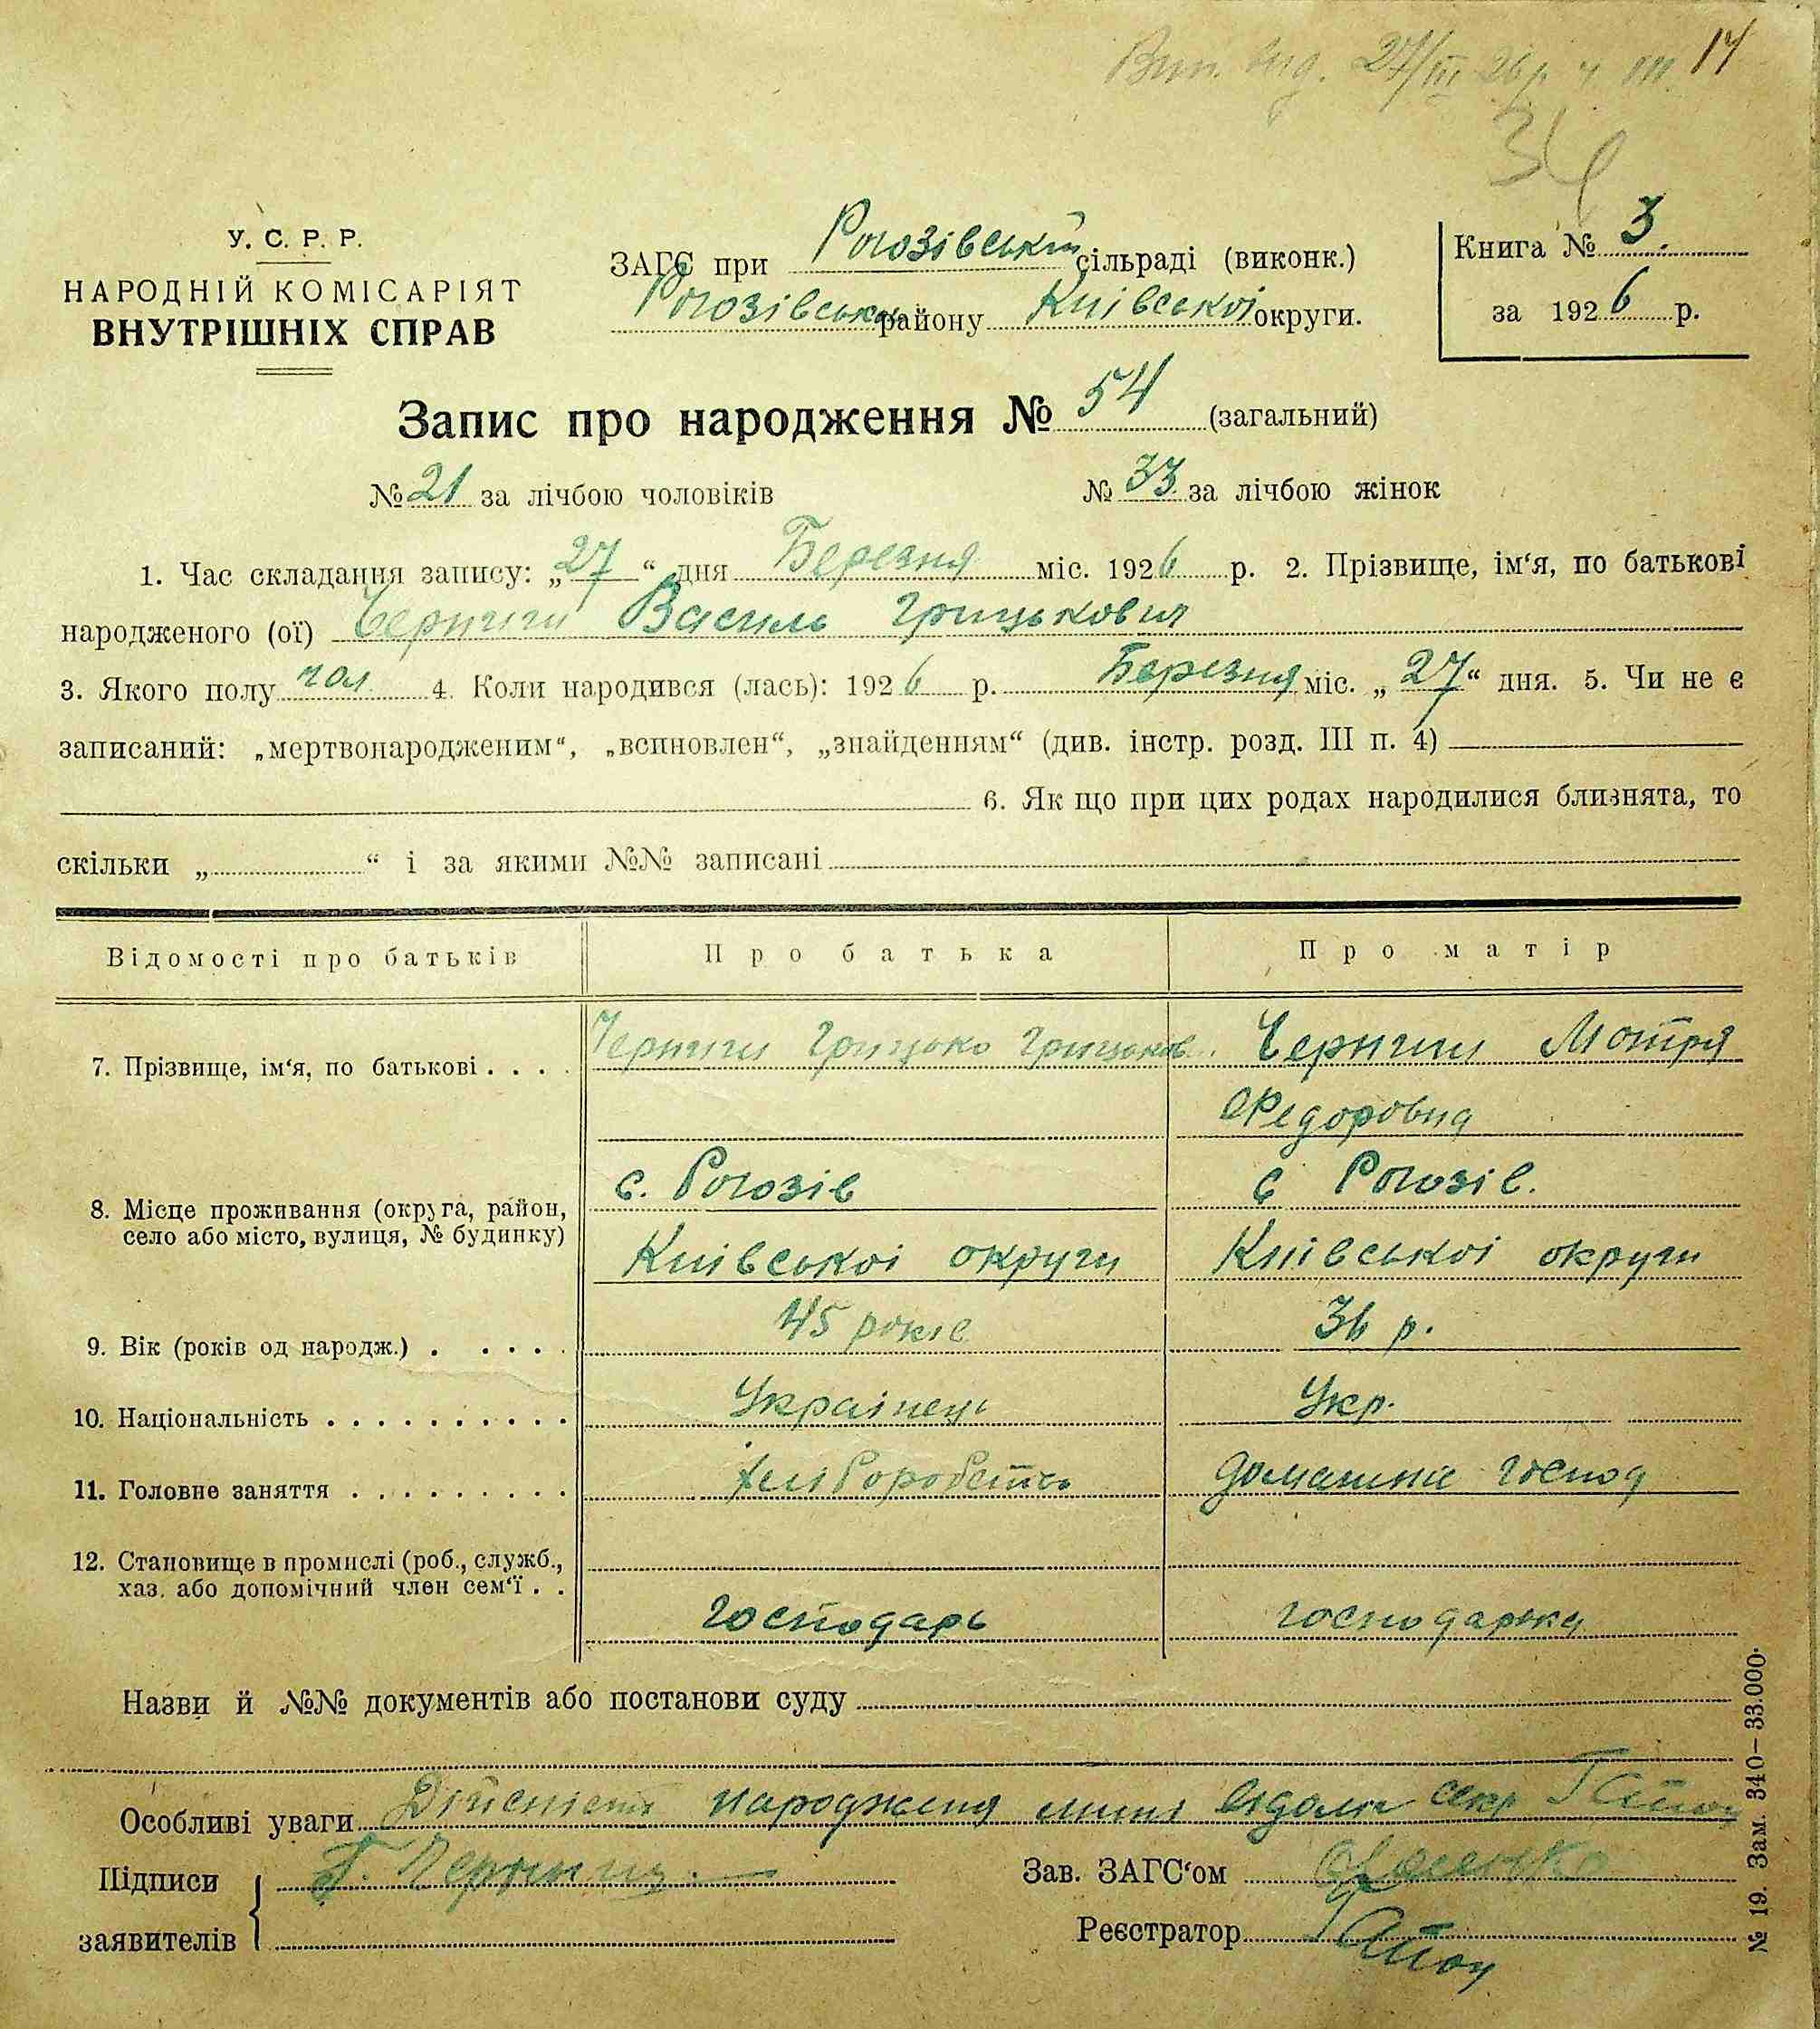 Вип. вид. 27/III 26 р. ч.
17
34
У. С. Р. Р.
НАРОДНІЙ КОМІСАРІЯТ
ВНУТРІШНІХ СПРАВ
ЗАГС при Рогозівській сільраді (виконк.)
Рогозівськ району Київської округи.
Книга № 3
за 1926 р.
Запис про народження № 54 (загальний)
№ 21 за лічбою чоловіків № 33 за лічбою жінок
1. Час складання запису: „27“ дня Березня міс. 1926 р. 2. Прізвище, ім‘я, по батькові
народженого (ої) Василь Грицькович
3. Якого полу чол. 4. Коли народився (лась): 1926 р. Березня міс. „27“ дня. 5. Чи не є
записаний: „мертвонародженим“, „всиновлен“, „знайденням“ (див. інстр. розд. III п. 4)
6. Як що при цих родах народилися близнята, то
скільки „ “ і за якими №№ записані
Відомості про батьків Про батька Про матір
7. Прізвище, ім‘я, по батькові . . . . Грицько Грицьков. Мотря
Федоровна
8. Місце проживання (округа, район, село або місто, вулиця, № будинку) с. Рогозів с Рогозів.
Київськоі округи Київськоі округи
9. Вік (років од народж.) . . . . . 45 років 36 р.
10. Національність . . . . . . . . . . Украінець Укр.
11. Головне заняття . . . . . . . . . хліборобство домашнє господ
12. Становище в промислі (роб., служб.,
хаз. або допомічний член сем‘ї . .
господарь господарка
Назви й №№ документів або постанови суду
Особливі уваги Дійсність народженя мині відомі секр
Підписи
заявителів
Зав. ЗАГС‘ом
Реєстратор
№ 19. Зам. 340—33.000.